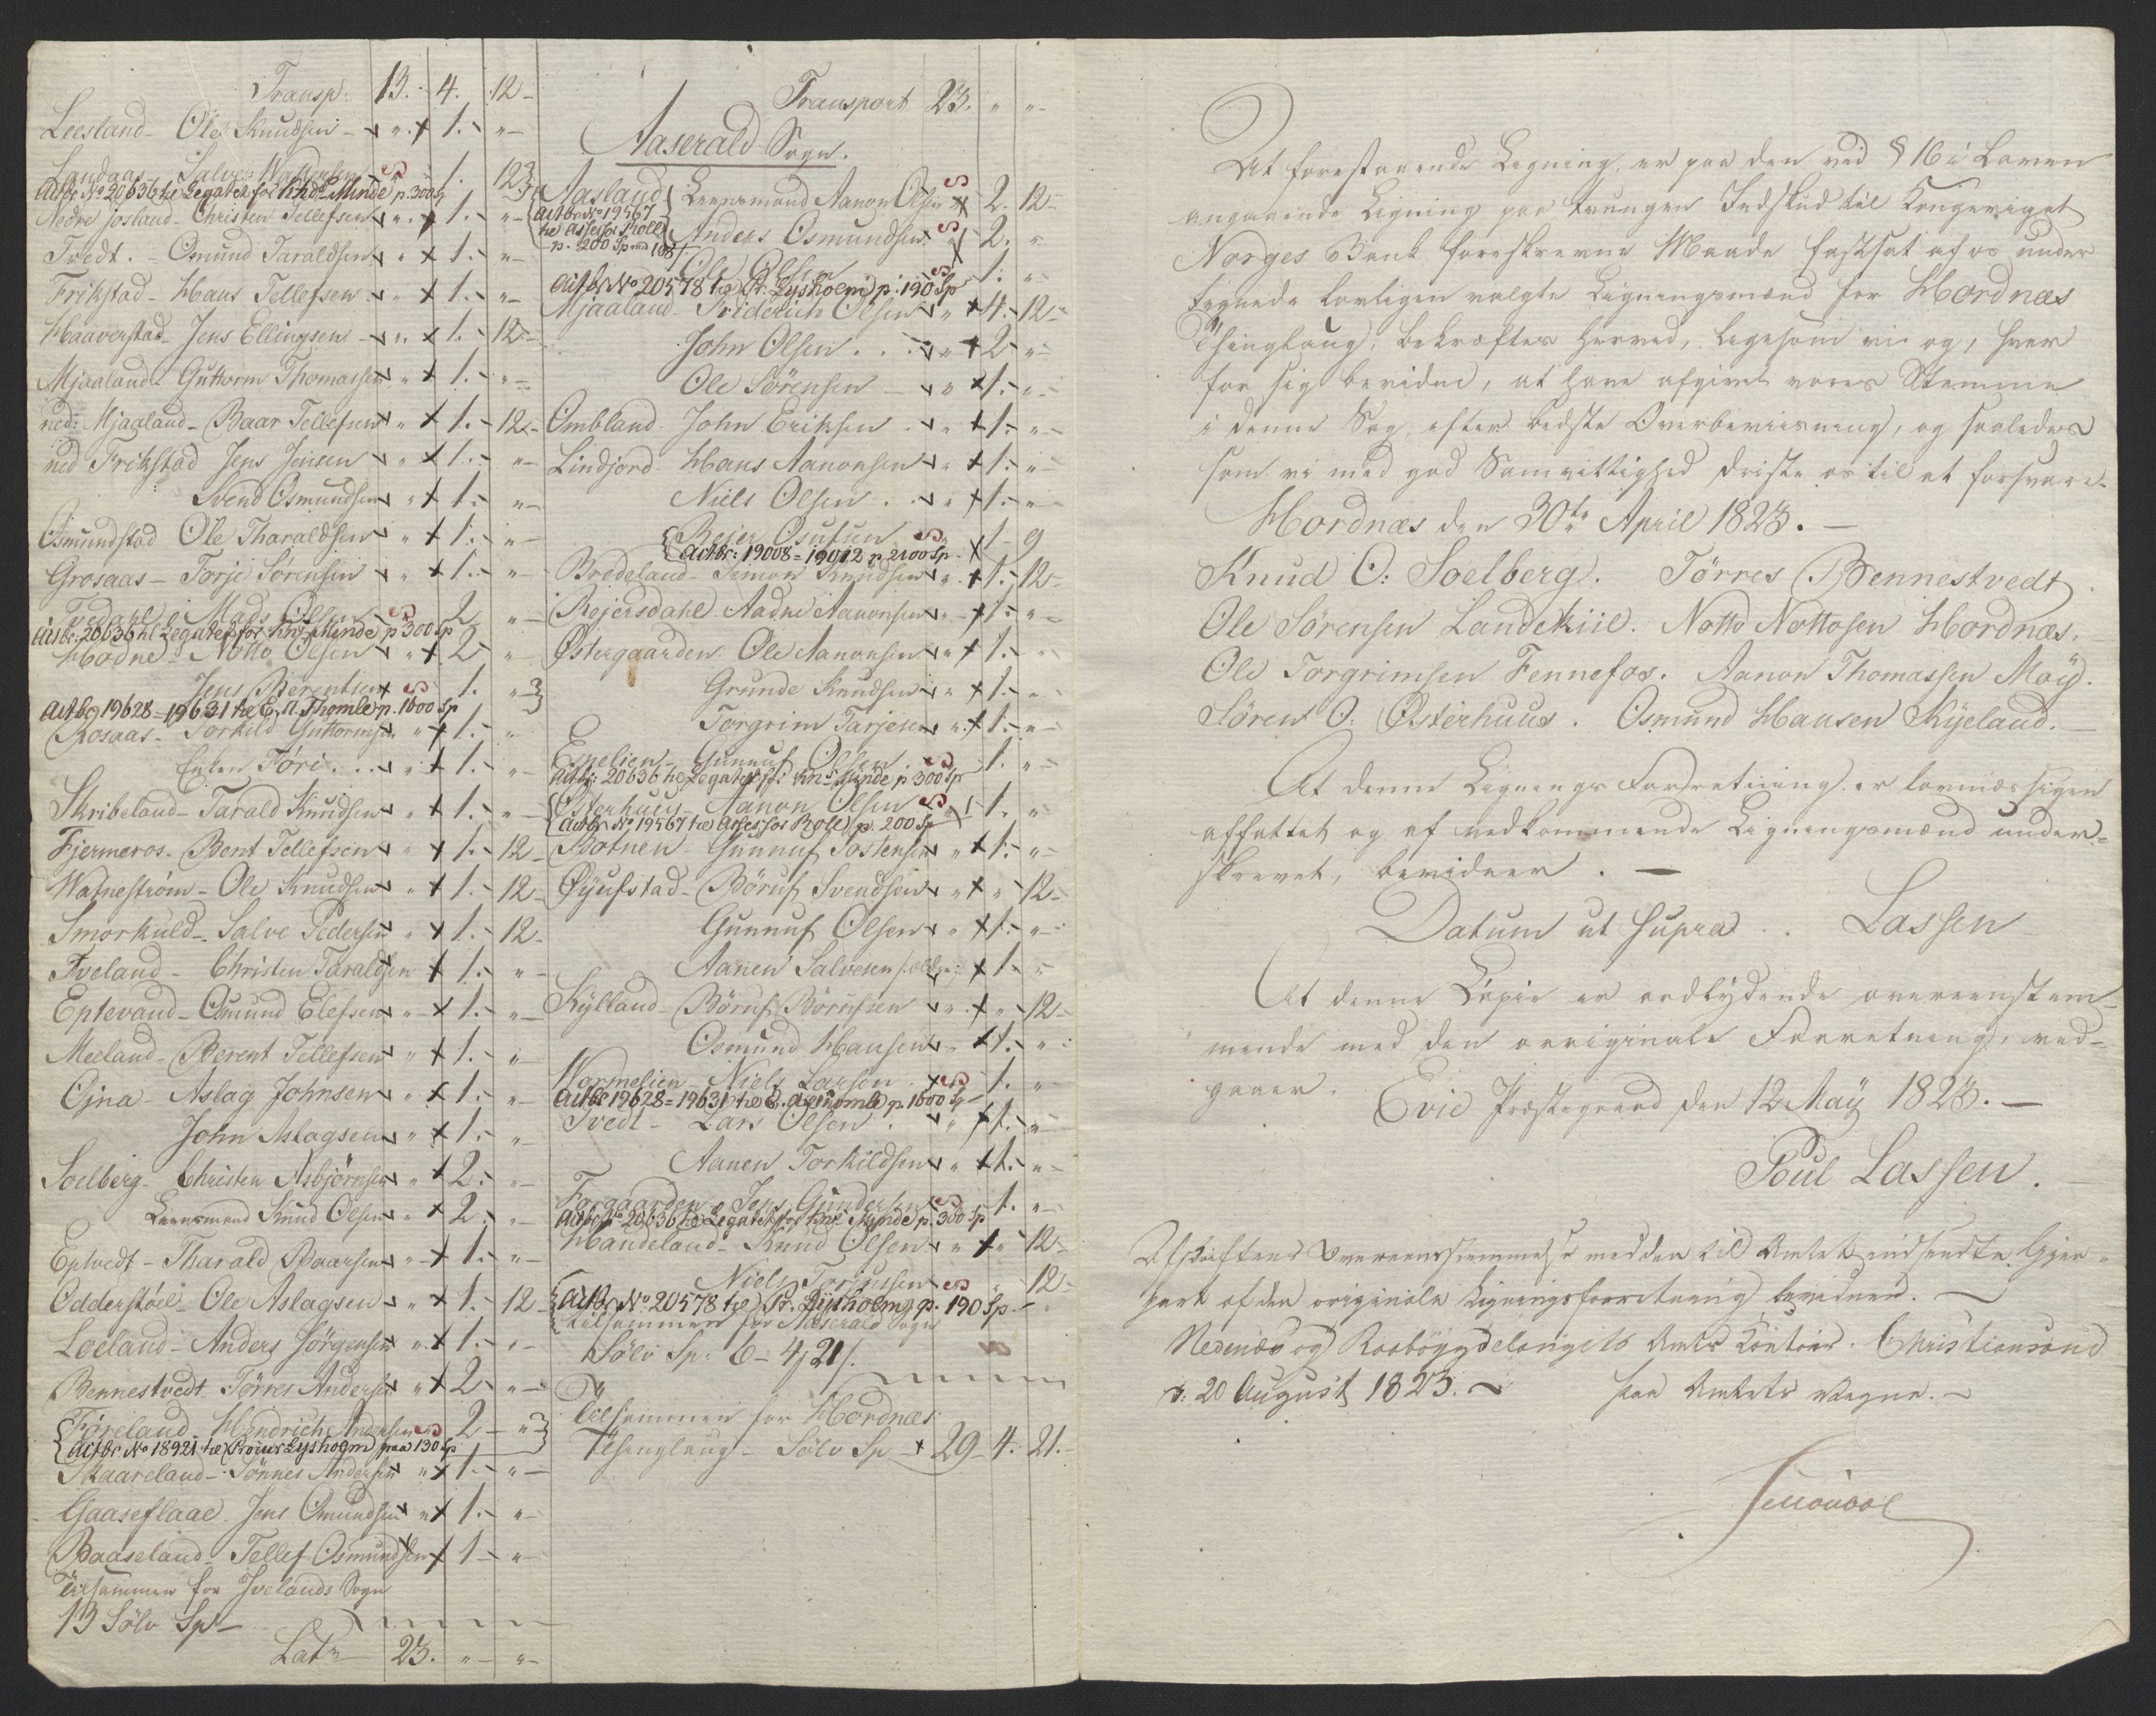 Transp. 13. 4. 12-
Leesland- Ole Knudsen - " 1. "
Landaas- Salve 1. 12
Actbr No 20636 til Legatet for Knds Minde p. 300 Sp
Nedre Josland- Christen Tellefsen " 1. "
Tvedt. - Osmund Taraldsen " 1. "
Frikstad- Hans Tellefsen " 1. "
Haaverstad- Jens Ellingsen " 1. 12-
Mjaaland- Guttorm Thomassen " 1. "
ned: Mjaaland- Baar Tellefsen " 1. 12-
ned Frikstad Jens Jensen " 1. "
Svend Osmundsen " 1. "
Osmundstad Ole Tharaldsen " 1. "
Grosaas- Torje Sörensen " 1. "
Mads Olsen 2 "
Actbr. 20636 til Legatet for Knds Minde p 300 Sp
Hodne- Notto Olsen " 2 "
Jens Berentsen 1. "
Actbr 19628=19631 til E. A. Thomle p. 1600 Sp
Rosaas- Torkild Guttormsen " 1. "
Enken Töri. . . " 1. "
Skribeland- Tarald Knudsen " 1. "
Fjermeros- Bent Tellefsen " 1. 12
Watneström- Ole Knudsen " 1. 12
Smorkuld- Salve Pedersen " 1. 12
Tveland- Christen Taraldsen 1. "
Eptevand- Osmund Elefsen " 1. "
Meeland- Berent Tellefsen " 1. "
Ojna- Aslag Johnsen " 1. "
John Aslagsen " 1. "
Soelberg- Christen Asbjörnsen " 2. "
Leensmand Knud Olsen " 2. "
Eptvedt- Tharald Baarsen " 1. "
Odderstöel- Ole Aslagsen " 1. 12
Loeland- Anders Jörgensen " 1. "
Bennestvedt. Törres Andersen " 2 "
Föreland. Hendrich Andersen 2 "
Actbr No 18921 til Provst Lysholm paa 130 Sp
Skaareland- Tönnes Andersen " 1. "
Gaaseflaae- Jens Omundsen " 1. "
Baaseland- Tellef Osmundsen 1 "
Tilsammen for Ivelands Sogn
13 Sölv Sp
Lats 23. " "
Transport 23. " "
Aaserald Sogn.
Aasland Leensmand Aanon Olsen 2. 12
Actbr No 19567
til Assessor Roll Anders Osmundsen 2. "
p. 200 Sp
Ole Olsen 1. "
Actbr No 20578 til Pr. Lysholm p. 190 Sp
Mjaaland- Friderich Olsen " 4. 12
John Olsen . . " 2 "
Ole Sörensen " 1. "
Ombland- John Eriksen " 1. "
Lindjord- Hans Aanonsen " 1. "
Niels Olsen . " 1. "
Reier 1 9
Actbr: 19008=19012 p. 2100 Sp
Bredeland- Simon Knudsen " 1. 12
Rejersdahl Aadne Aanonsen " 1. "
Östergaarden Ole Aanonsen " 1. "
Grunde Knudsen " 1. "
Torgrim Tarjesen " 1. "
Espelien- Gunnuf Olsen . 1. "
Actbr: 20636 til Legatet for Knds Minde p 300 Sp
Österhuus- Aanon Olsen 1. "
Actbr No 19567 til Assessor Roll p. 200 Sp
Botnen- Gunnuf Tostensen " 1. "
Öyufstad- Böruf Svendsen " " 12
Gunnuf Olsen " 1. "
Aanen Salvesen 1. "
Kylland- Böruf Börufsen " " 12
Osmund Hansen " 1. "
Wormelien- Niels Larsen . 1. "
Actbr 19628=19631 til E. A. Thomle p. 1600 Sp
Tvedt- Lars Olsen . " 1. "
Aanen Torkildsen " 1. "
Fargaarden- Jens Gundersen 1. "
Actbr No 20636 til Legatet for Knds Minde p. 300 Sp
Handeland- Knud Olsen " " 12
Niels Torjussen " 12
Actbr No 20578 til Pr. Lysholm p. 190 Sp
tilsammen for Aaserald Sogn
Sölv Sp: 6- 4, 21 s.
Tilsammen for Hordnæs
Thinglaug- Sölv Sp 29- 4. 21.
At forestaaende Ligning, er paa den ved § 16 i Loven
angaaende Ligning paa tvungen Indskud til Kongeriget
Norges Bank foreskrevne Maade fastsat af os under
tegnede lovligen valgte Ligningsmænd for Hordnæs
Thinglaug, bekræftes herved, ligesom vi og, hver
for sig bevidne, at have afgivet vores Stemme
i denne Sag efter bedste Overbeviisning, og saaledes
som vi med god Samvittighed driste os til at forsvare.
Hordnæs den 30te April 1823. -
Knud O: Soelberg. Törres Bennestvedt.
Ole Sörensen Landekiil. Notto Nottosen Hordnæs.
Ole Torgrimsen Fennefos. Aanon Thomassen Moÿ.
Sören O. Österhuus. Osmund Hansen Kÿeland. -
At denne Lignings Forretning er lovmæssigen
affattet og af vedkommende Ligningsmænd under=
skrevet, bevidner . -
Datum ut Supra . . Lassen
At denne Copie er ordlydende overeenstem-
mende med den orriginale Forretning, ved-
gaaer. Evie Præstegaard den 12 Maÿ 1823. -
Poul Lassen.
Afskriftens Overeensstemmelse med den til Amtet indsendte Gjen-
part af den originale Ligningsforretning bevidnes. -
Nedenæs og Raabÿgdelangets Amts Contoir. Christiansand
d: 20 August 1823. - paa Amtets Vegne. -